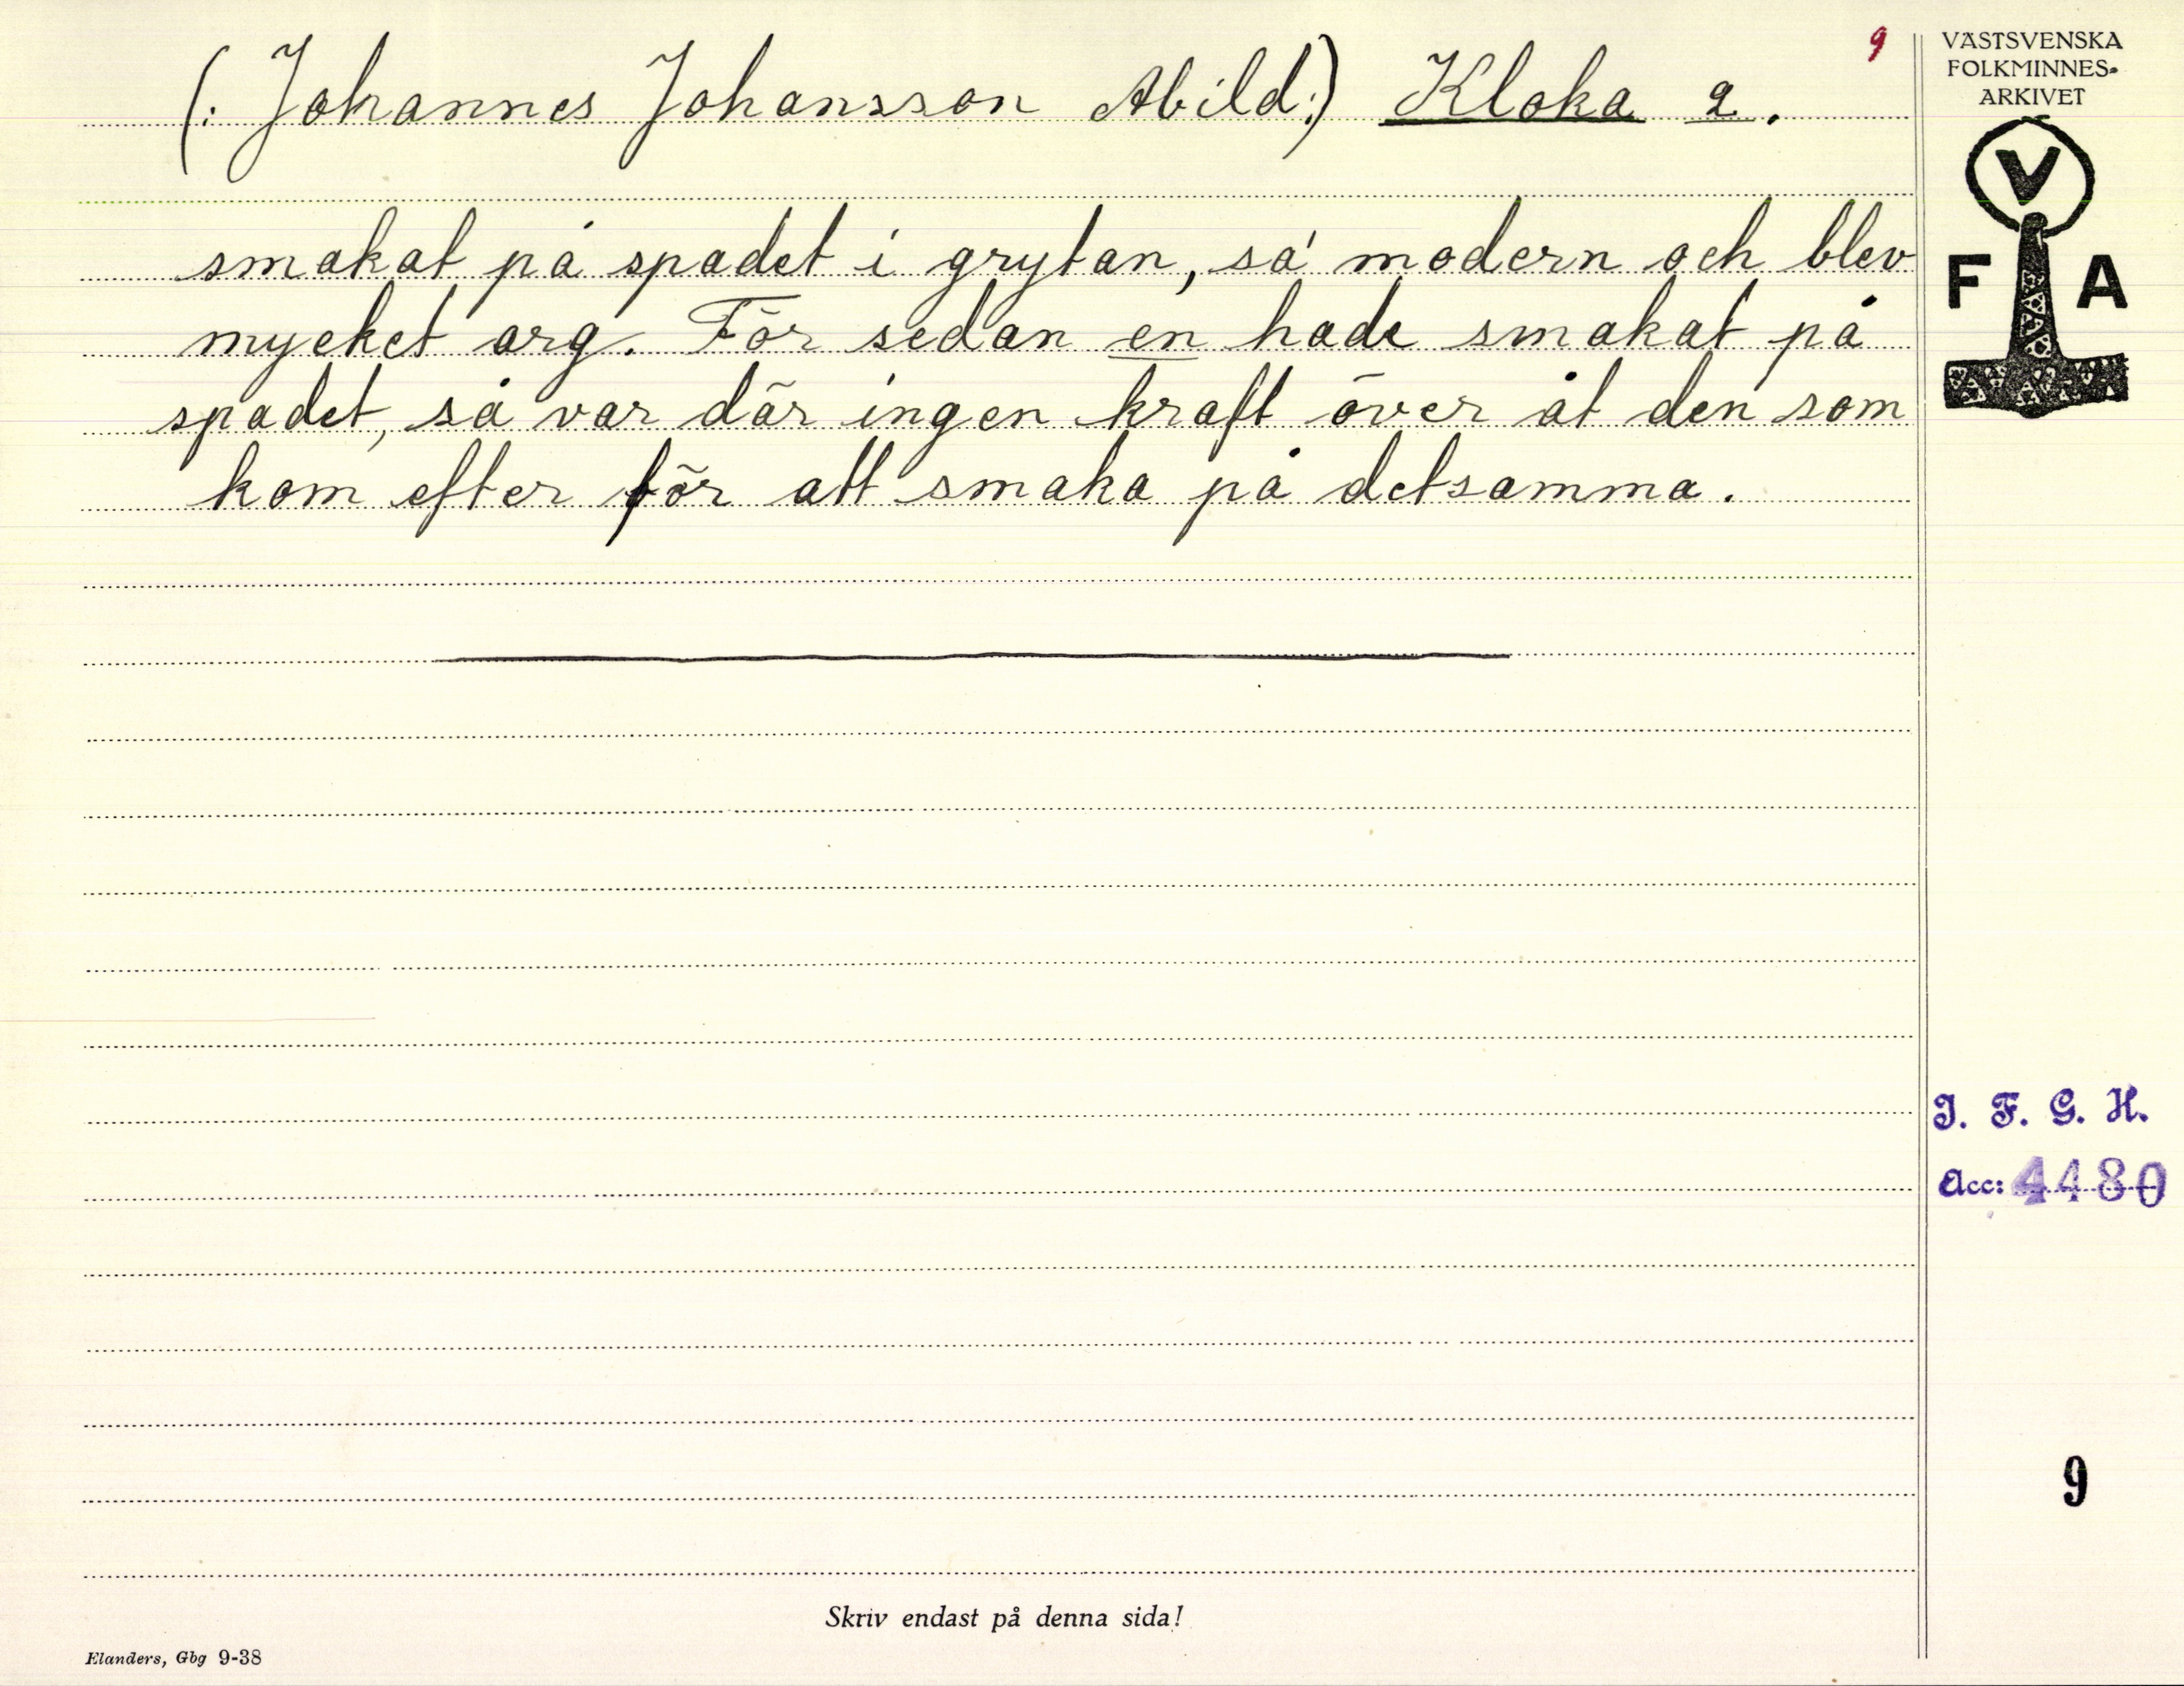 (: Johannes Johansson Abild:) Kloka 2.
9
smakat på spadet i grytan, sa' modern och blev
mycket arg. För sedan en hade smakat på
spadet, så var där ingen kraft över åt den som
kom efter för att smaka på detsamma.
VÄSTSVENSKA
FOLKMINNES-
ARKIVET
V
F A
I. F. G. H.
Acc: 4480
9
Skriv endast på denna sida!
Elanders, Gbg 9-38